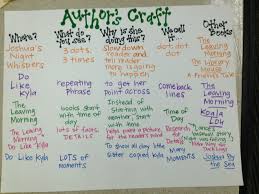 Author's Craft
Where?
What do you see?
Why is she doing this?
We call it...
Other Books
Joshua's Night Whispers
3 dots, 3 times
Slow down reader and tell reader more is going to happen
dot dot dot
The Leaving Morning
Do Like Kyla
repeating phrase
to get her point across
comeback lines
The Leaving Morning
The Leaving Morning
books start with time of day
Instead of starting with weather, start with time
Time of Day
Koala Lou
The Leaving Morning
Do Like Kyla
lots of facts, DETAILS.
helps make a picture for the reader's mind
Research for details
Do Like Kyla
LOTS of moments
To show all day little sister copied Kyla
Many Moments
Joshua By the Sea